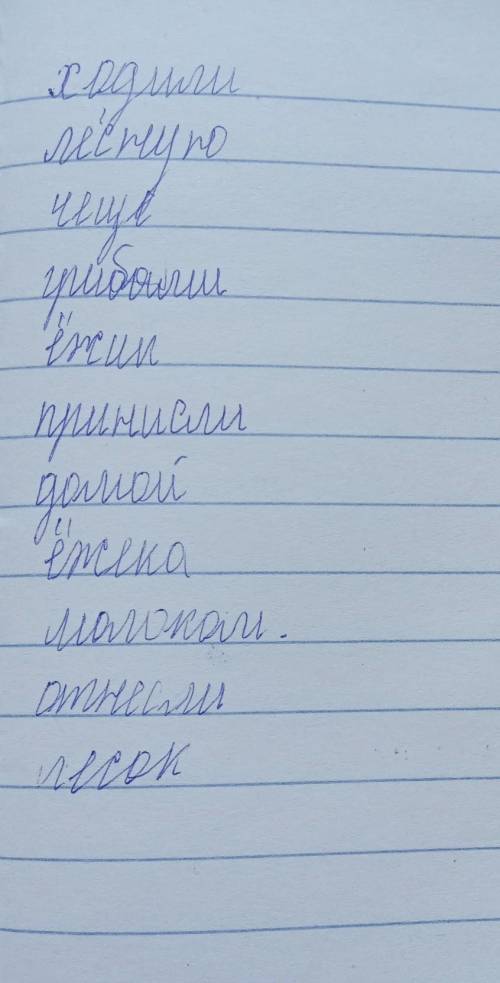 ходили
лёсную
чеще
грибами
ёжик
принисли
домой
ёжека
малоком.
отнесли
лесок